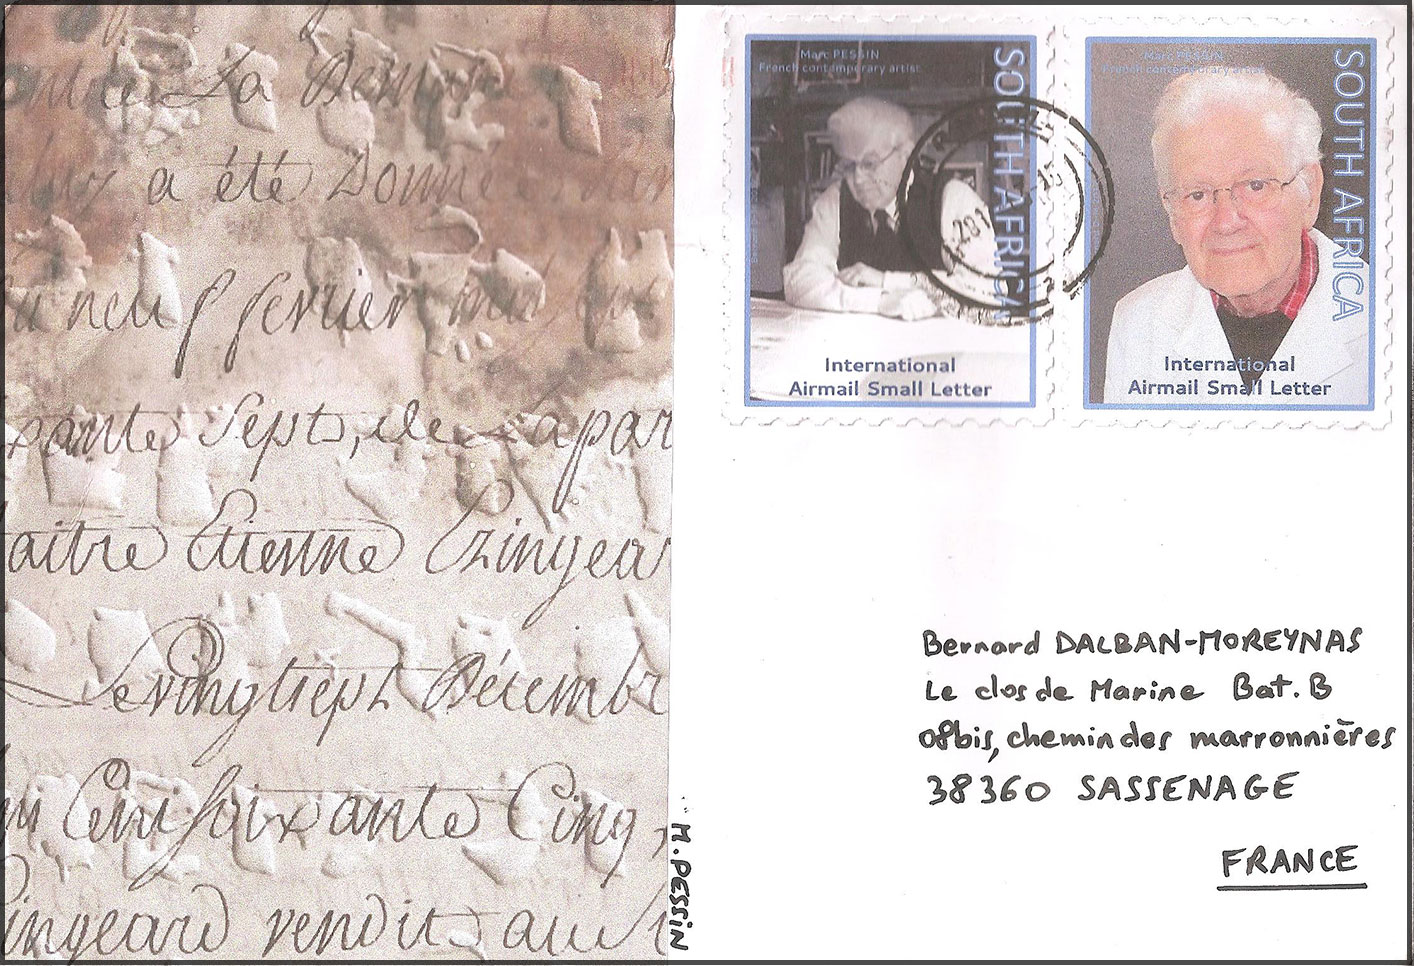 La
a été Donnée
neuf fevrier
xante Sept, de la par
aitre Etienne
Le vingt sept Decembr
Cent soixante Cinq,
vendit au
M. PESSiN
Marc PESSIN
French contemporary artist
SOUTH AFRICA
International
Airmail Small Letter
201
Marc PESSIN
French contemporary artist
SOUTH AFRICA
International
Airmail Small Letter
Bernard DALBAN-MOREYNAS
Le clos de Marine Bat. B
08bis, chemin des marronnières
38360 SASSENAGE
FRANCE